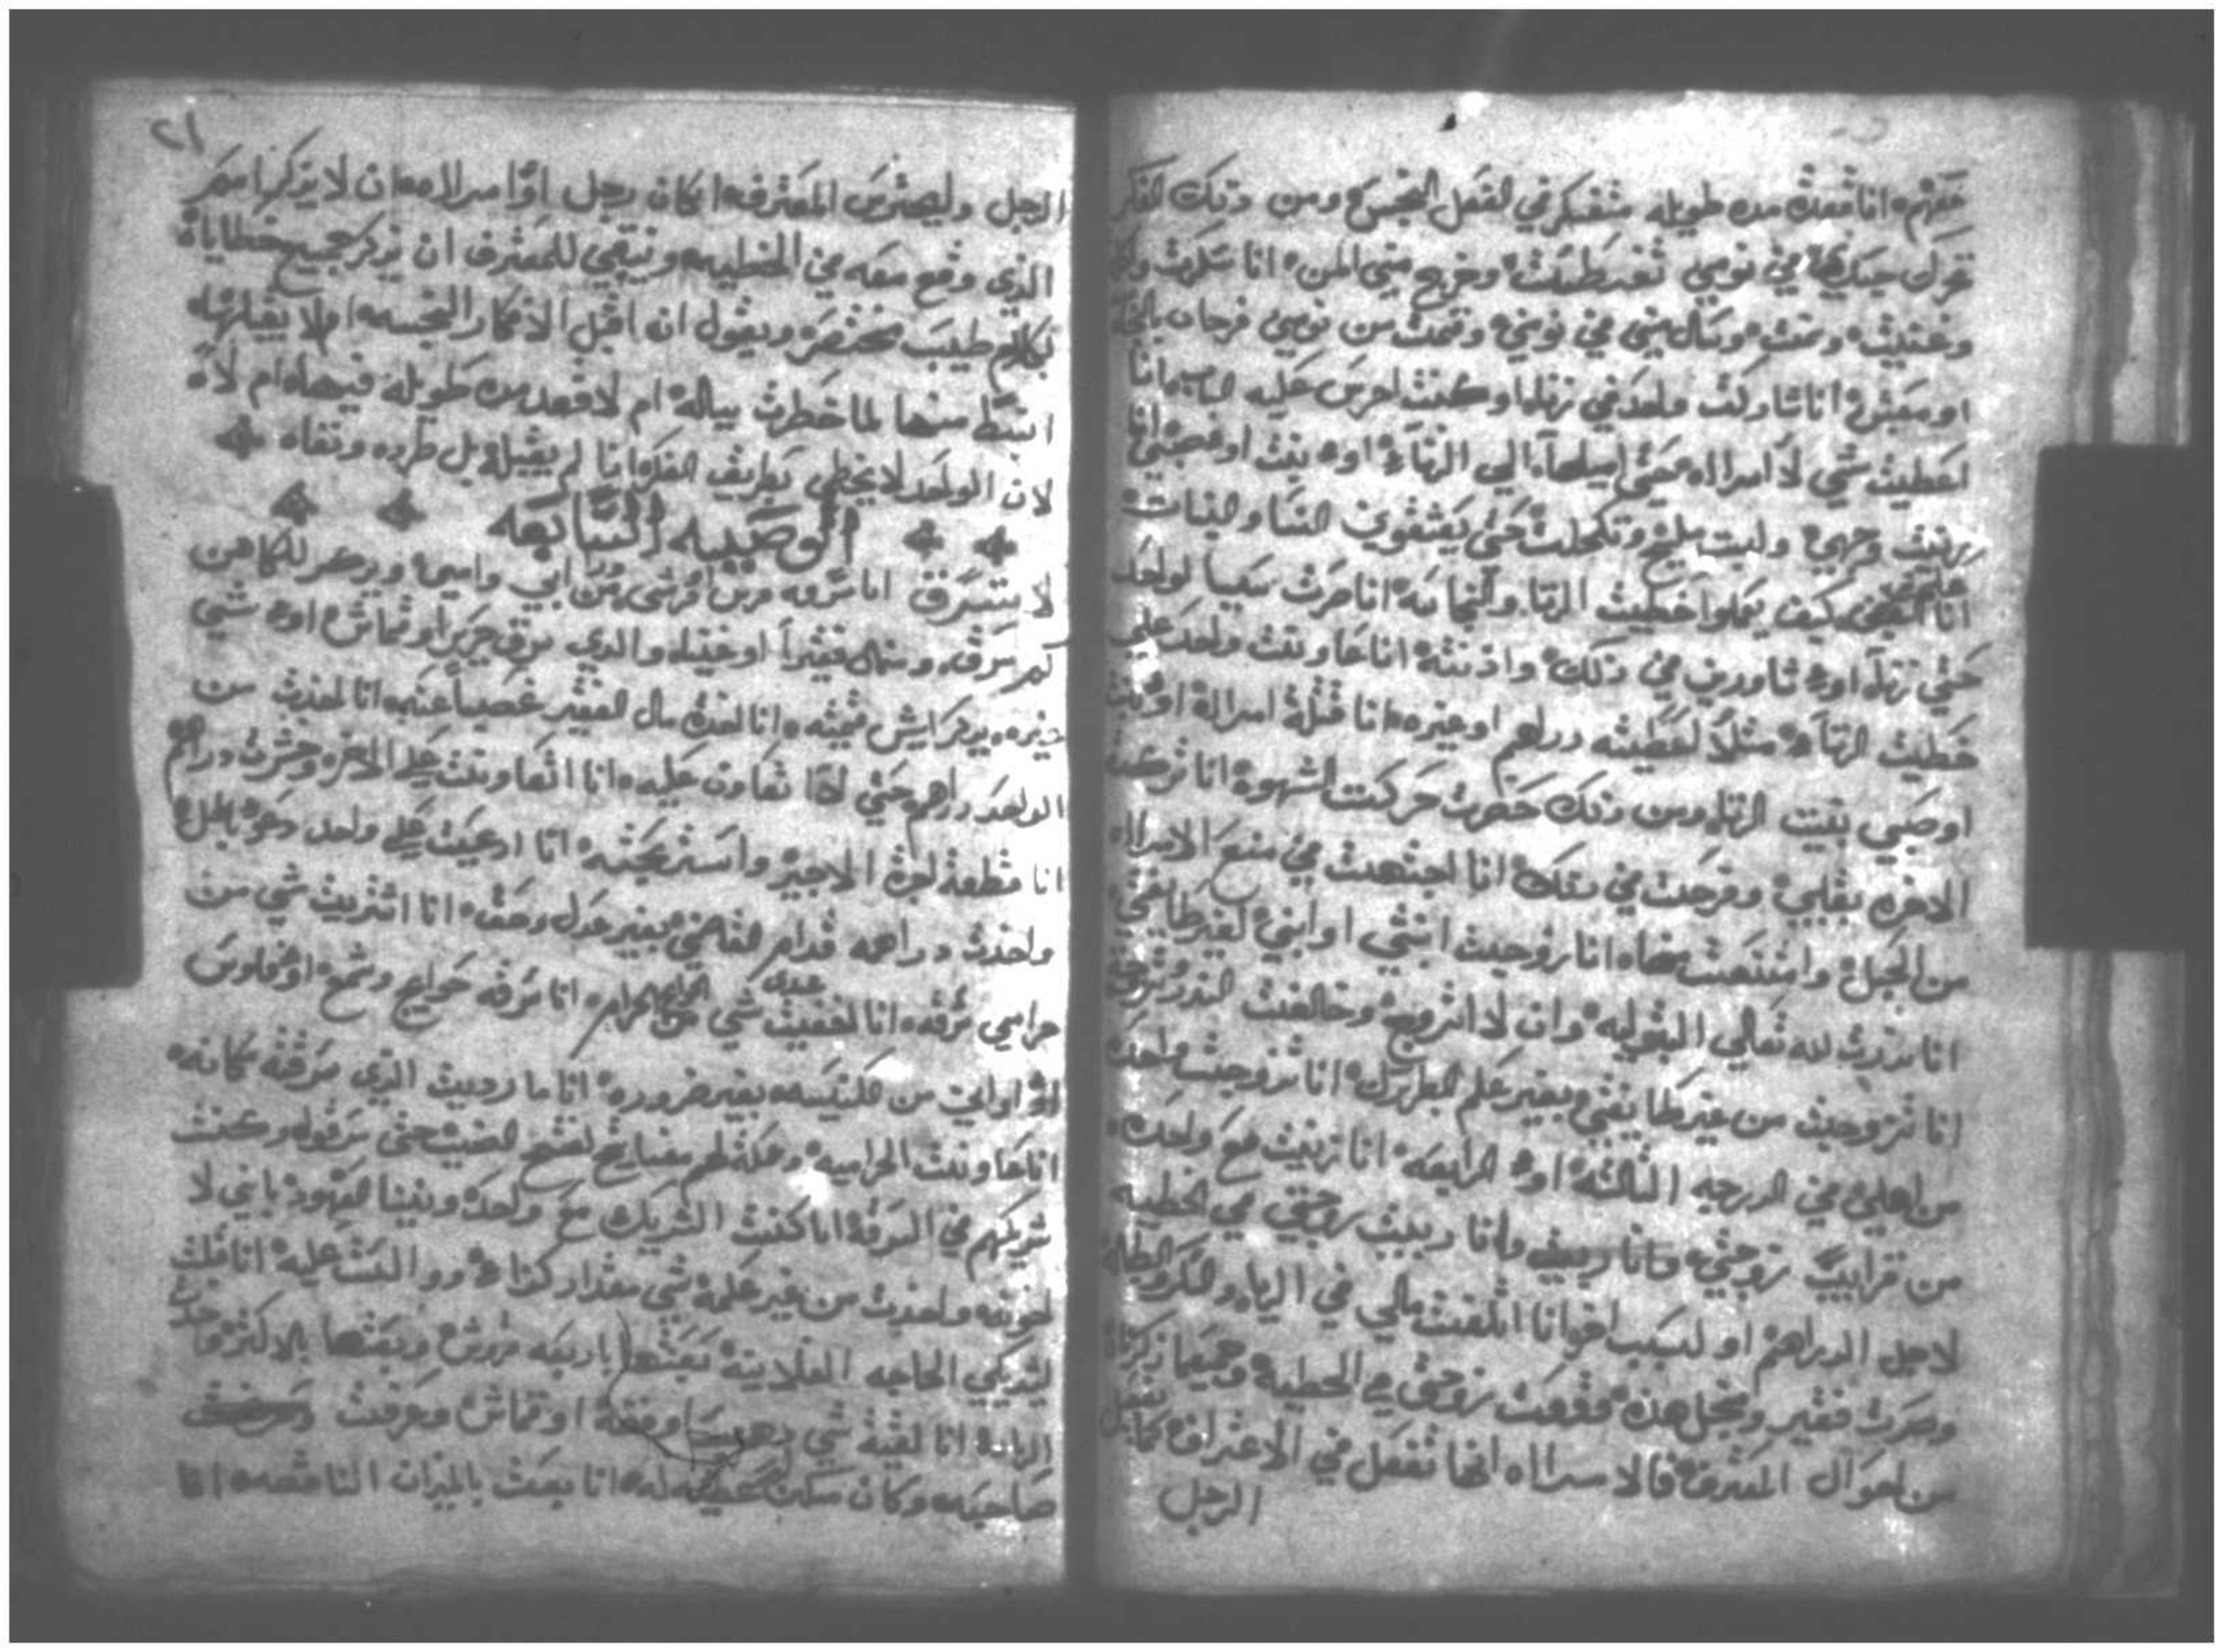 انا قعدة مده طويله متفكر في الفعل النجس ومن ذلك الفكر
في نومي وخرج مني المني انا سكرت
ونمت وسال مني في نومي وقمت من نومي فرحان
انا شاركت واحد في زناه او كنت احرس عليه انا
اعطيت شي لامرااه حتى اميلها الي الزناء او بنت او
زينت وجهي ولبست مليح وتكحلت حتى يعشقوني النسا والبنات
انا كيف يعملوا خطيت الزنا والنجاسه انا صرت سببا لواحد
حتى زنا او شاورني في ذلك واذنته انا عاونت واحد علي
خطيت الزناء مثلا اعطيته دراهم او غيره انا قبلة امراة او بنت
او صبي بنيت الزنا ومن ذلك حصرت حركت الشهوة انا
بقلبي وفرحت في ذلك انا اجتهدت في منع الامرااه
من الحبل وامتنعت منها انا زوجيت ابنتي او ابني لغير طايفتي
انا نذرت لله تعالي البتوليه وان لا اتزوج وخالفت النذر وتزوجت
انا تزوجيت من غير طايفتي بغير علم البطريرك انا تزوجت واحدة
من اهلي في الدرجه الثالثة او الرابعه انا زنيت مع واحده
من قرايب زوجتي وانا ربيت زوجتي في الخطيه
لاجل الدراهم او لسبب اخر انا اتلفت مالي في الزنا والسكر والبطاله
وصرت فقير ومن اجل هذه وقعت زوجتي في الخطية وجميع ما ذكرنا
من احوال المعترف فالامرااه انها تفعل في الاعتراف كما يفعل
الرجل
٢١
الرجل وليحترس المعترف ان كان رجل او امرااه ان لا يذكر اسم
الذي وقع معه في الخطيه وينبغي للمعترف ان يذكر جميع خطاياه
بكلام طيب مختصر ويقول ان اقبل الافكار النجسه ام لا يقبلها
انبسط منها لما خطرت بباله ام لا قعد مده طويله فيها ام لا
لان الواحد لا يخطي بطريق الفكر اذا لم يقبله بل طرده ونفاه
الوصيه السابعه
لا تسرق انا سرقه من ابي وامي ويذكر للكاهن
كم سرقه ومنهو فقيرا او غنيا والذي سرق حرير او قماش او شي
غيره يذكر ايش قيمته انا اخدة مال الفقير غصبا عنه انا اخذت من
الواحد دراهم حتى اتعاون عليه انا اتعاونت علي الاخر وخسرت دراهم
انا قطعة اجرة الاجير واسترجيته انا ادعيت علي واحد دعوة باطل
واخذت دراهمه قدام القاضي بغير عدل وحق انا اشتريت شي من
حرامي سرقه انا اخفيت شي عندي من الحرام انا سرقه حوايج وشمع او فلوس
او اواني من الكنيسه بغير ضروره انا ما رديت الذي سرقته مكانه
انا عاونت الحراميه وعملة لهم مفاتيح لفتح البيت حتى سرقوا وكنت
شريكهم في السرقة انا كنت الشريك مع واحد وبيننا العهود باني لا
اخونه واخذت من غير علمه شي مقدار كذا انا قلت
لشريكي الحاجه الفلانية بعتها باربعه قروش وبعتها بالاكثر وخدت
الزايد انا لقية شي دهب او فضة او قماش وعرفت
صاحبه وكان ممكن اعطيه له انا بعت بالميزان الناقصه انا